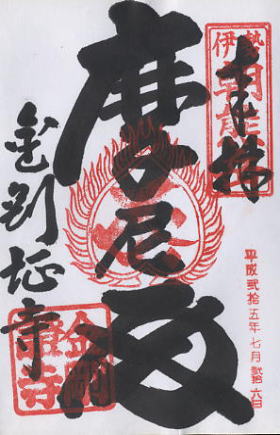 奉拝
伊勢
朝熊
摩尼殿
平成弐拾五年七月弐拾六日
金剛証寺
金剛
證寺